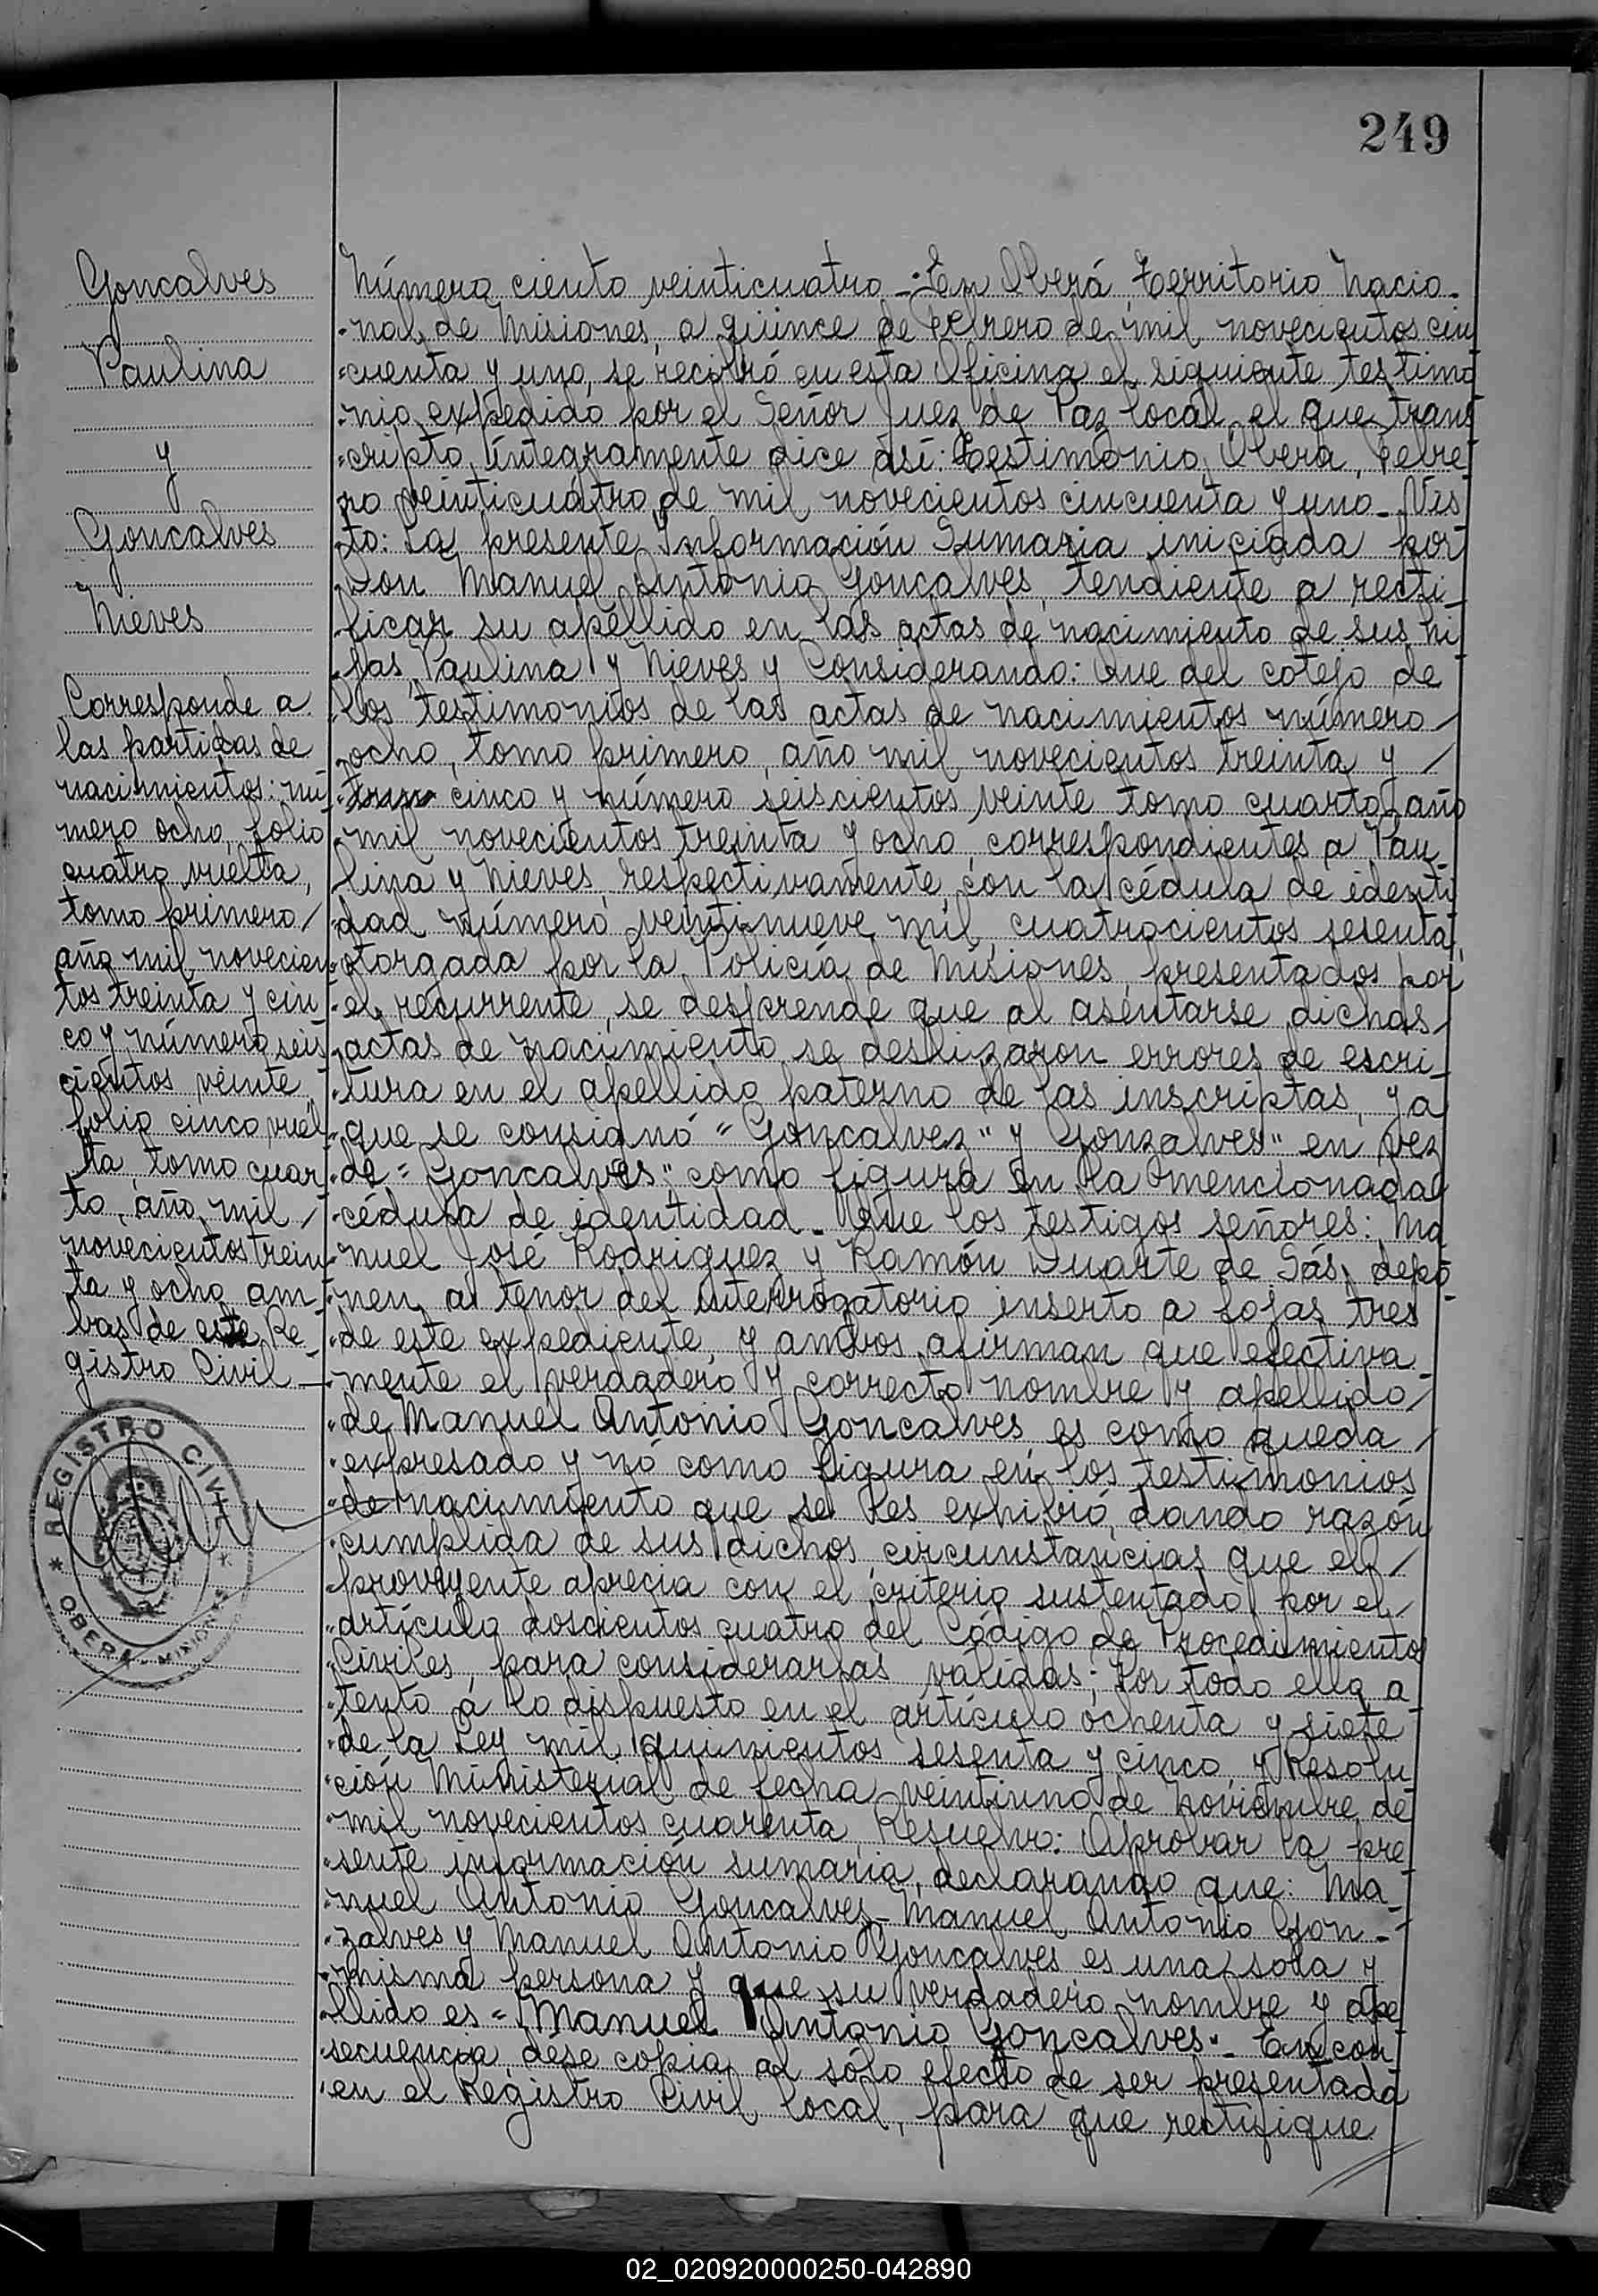 249
Goncalves
Paulina
y
Goncalves
Nieves
Corresponde a
las partidas de
nacimientos: nú-
mero ocho, folio
cuatro vuelta,
tomo primero /
año mil novecien-
tos treinta y cin-
co y número seis
cientos veinte
folio cinco vuel-
ta, tomo cuar-
to, año mil /
novecientos trein-
ta y ocho am-
bas de este Re
gistro Civil —
REGISTRO CIVIL
OBERA - MISIONES
Número ciento veinticuatro - En Oberá, Territorio Nacio-
nal de Misiones, a quince de Febrero de mil novecientos cin
cuenta y uno, se recibió en esta Oficina el siguiente testimo
nio expedido por el Señor Juez de Paz local el que trans
cripto íntegramente dice así: Testimonio, Oberá, Febre
ro veinticuatro de mil novecientos cincuenta y uno - Vis
to: La presente Información Sumaria iniciada por
Don Manuel Antonio Goncalves, tendiente a recti-
ficar su apellido en las actas de nacimiento de sus hi
jas, Paulina y Nieves y Considerando: Que del cotejo de
los testimonios de las actas de nacimientos número /
ocho, tomo primero, año mil novecientos treinta y /
cinco y número seiscientos veinte tomo cuarto, año
mil novecientos treinta y ocho, correspondientes a Pau-
lina y Nieves respectivamente, con la cédula de identi
dad número veintinueve mil cuatrocientos sesenta,
otorgada por la Policía de Misiones, presentados por
el recurrente, se desprende que al asentarse dichas /
actas de nacimiento se deslizaron errores de escri-
tura en el apellido paterno de las inscriptas, ya
que se consignó "Goncalvez" y Gonzalves" en vez
de "Goncalves", como figura en la mencionada
cédula de identidad - Que los testigos señores: Ma
nuel José Rodriguez y Ramón Duarte de Sás, depo
nen a tenor del interrogatorio inserto a fojas tres
de este expediente, y ambos afirman que efectiva
mente el verdadero y correcto nombre y apellido /
de Manuel Antonio Goncalves, es como queda /
expresado y nó como figura en los testimonios
de nacimiento que se les exhibió, dando razón
cumplida de sus dichos, circunstancias que el /
proveyente aprecia con el criterio sustentado por el /
artículo doscientos cuatro del Código de Procedimientos
Civiles, para considerarlas válidas; Por todo ello, a
tento á lo dispuesto en el artículo ochenta y siete
de la Ley mil quinientos sesenta y cinco, y Resolu
ción Ministerial de fecha veintiuno de Noviembre de
mil novecientos cuarenta, Resuelvo: Aprobar la pre-
sente información sumaria, declarando que: Ma-
nuel Antonio Goncalvez - Manuel Antonio Gon-
zalves y Manuel Antonio Goncalves es una sola y
misma persona y que su verdadero nombre y ape
llido es "Manuel Antonio Goncalves" - En con-
secuencia, dése copia al sólo efecto de ser presentada
en el Registro Civil local, para que rectifique
02_020920000250-042890